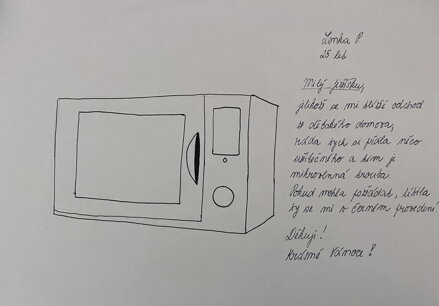 Lenka P.
25 let
Milý Ježíšku,
jelikož se mi blíží odchod
z dětského domova,
ráda bych si přála něco
užitečného a tím je
mikrovlnná trouba.
Pokud mohu požádat, líbila
by se mi v černém provedení.
Děkuji!
Krásné Vánoce!